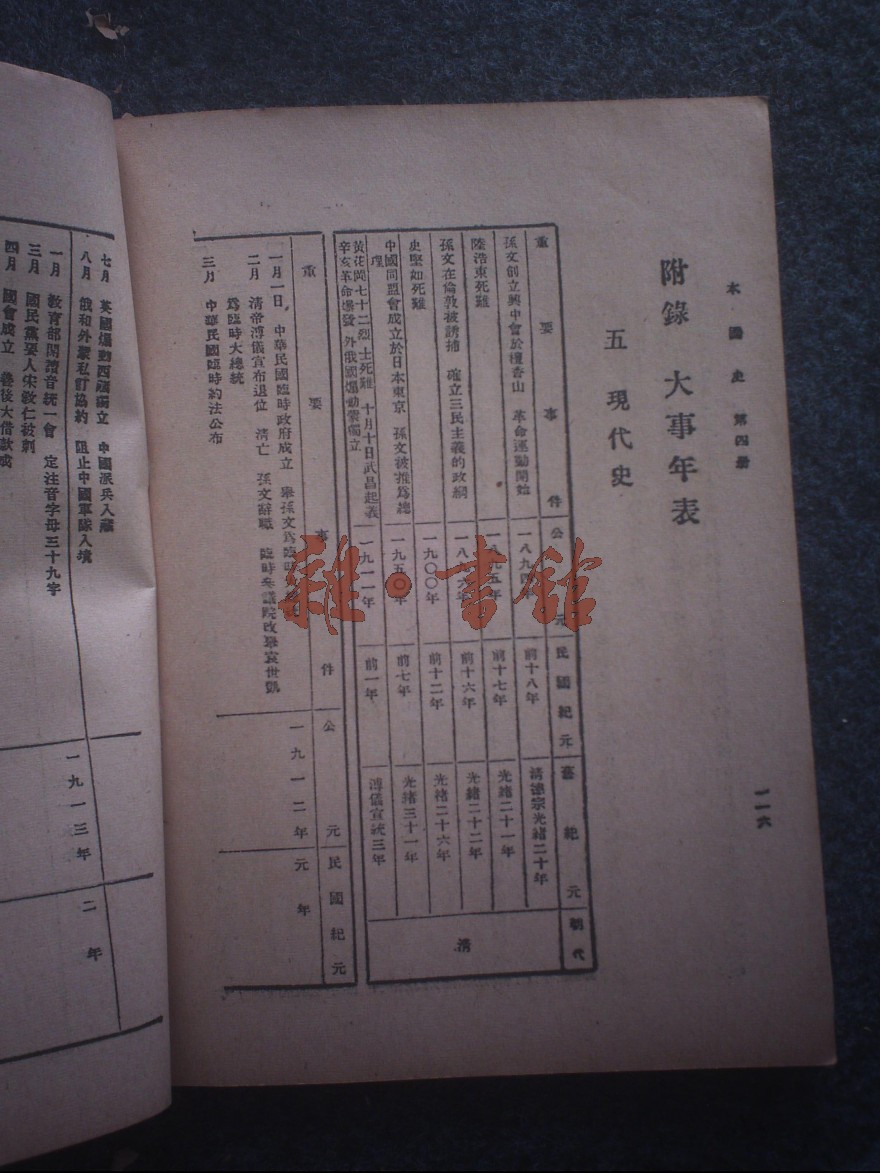 本國史 第四册
一一六
附錄 大事年表
五 現代史
重要事件 公元 民國紀元 舊紀元 朝代
孫文創立興中會於檀香山 革命運動開始 一八九四年 前十八年 清德宗光緒二十年 清
陸浩東死難 一八九五年 前十七年 光緒二十一年
孫文在倫敦被誘捕 確立三民主義的政綱 一八九六年 前十六年 光緒二十二年
史堅如死難 一九〇〇年 前十二年 光緒二十六年
中國同盟會成立於日本東京 孫文被推為總理 一九五〇年 前七年 光緒三十一年
黃花岡七十二烈士死難 十月十日武昌起義
辛亥革命爆發 外俄國煽動蒙獨立 一九一一年 前一年 溥儀宣統三年
重要事件 公元 民國紀元
一月一日 中華民國臨時政府成立 舉孫文爲臨時大總統 一九一二年 元年
二月 清帝溥儀宣布退位 清亡 孫文辭職 臨時參議院改舉袁世凱
爲臨時大總統
三月 中華民國臨時約法公布
七月 英國煽動西藏獨立 中國派兵入藏
八月 俄和外蒙私訂協約 阻止中國軍隊入境
一月 教育部開讀音統一會 定注音字母三十九字 一九一三年 二年
三月 國民黨要人宋教仁被刺
四月 國會成立 善後大借款成
雜·書館